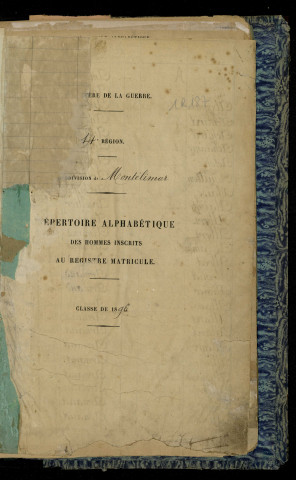 ÈRE DE LA GUERRE.
14e RÉGION.
DIVISION de Montélimar
ÉPERTOIRE ALPHABÉTIQUE
DES HOMMES INSCRITS
AU REGISTRE MATRICULE.
CLASSE DE 1896